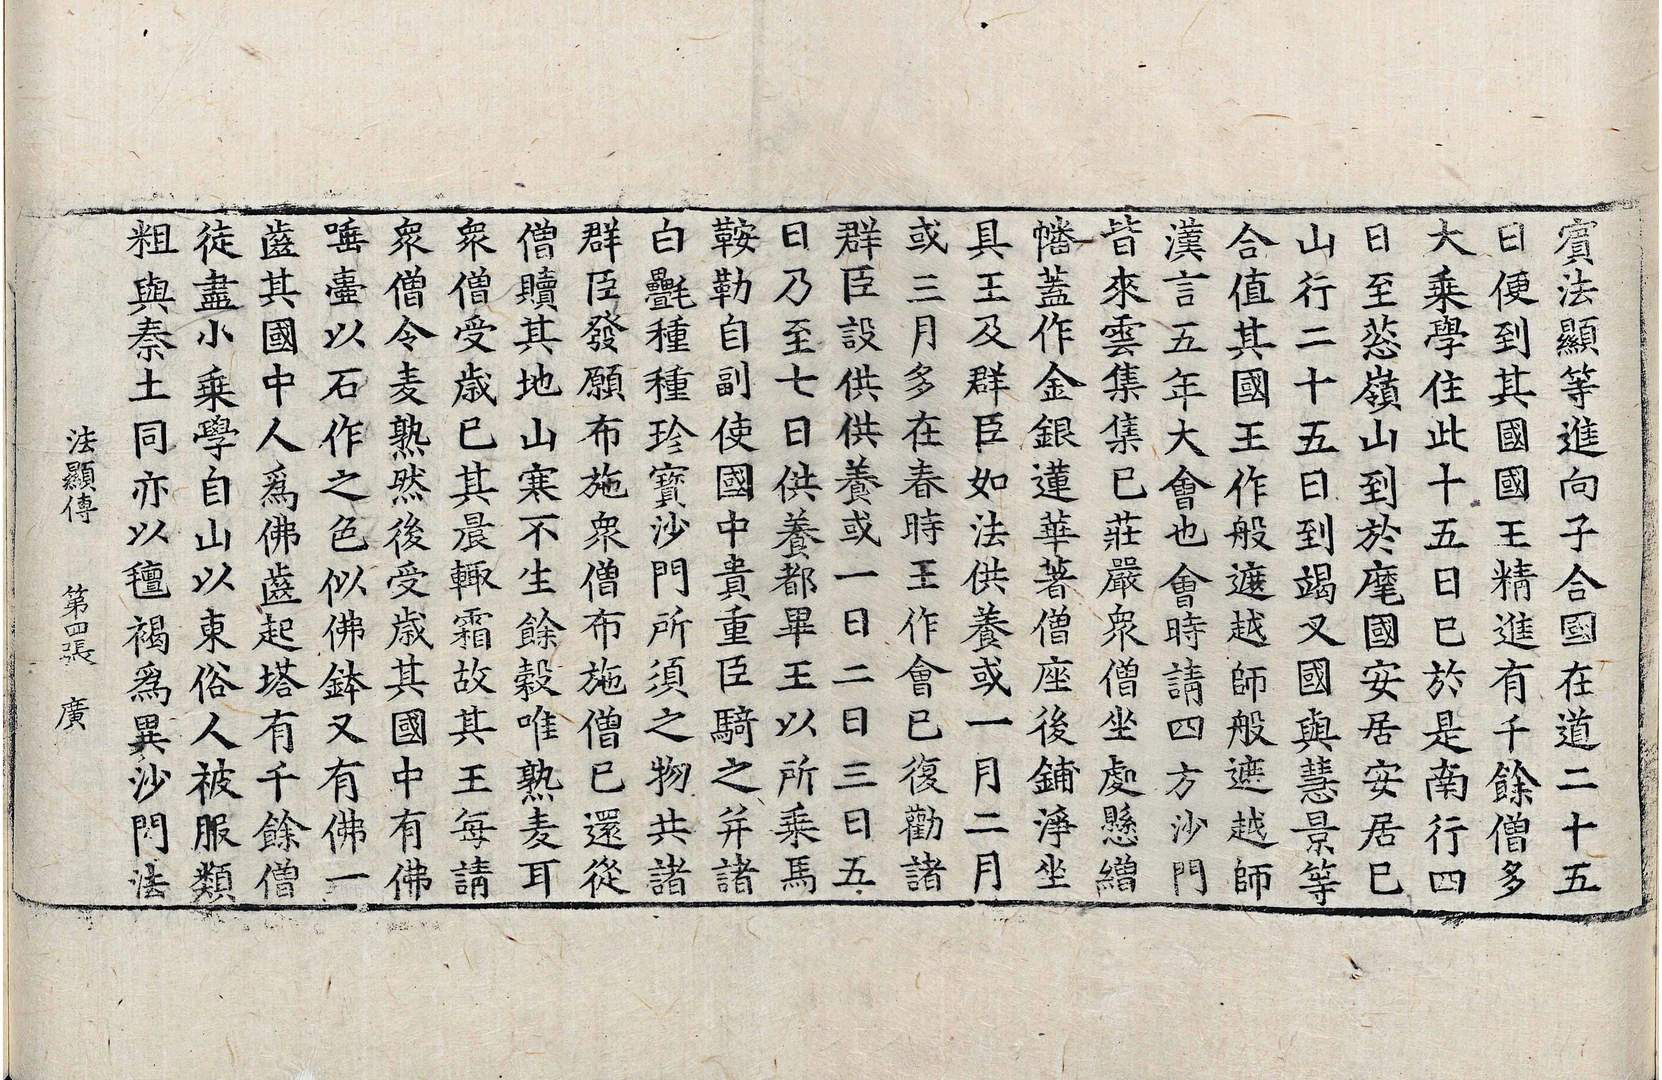 賔法顯等進向子合國在道二十五
日便到其國國王精進有千餘僧多
大乗學住此十五日已於是南行四
日至葱嶺山到於麾國安居安居已
山行二十五日到竭叉國與慧景等
合值其國王作般遮越師般遮越師
漢言五年大會也會時請四方沙門
皆來雲集集已莊嚴衆僧坐處懸繒
幡蓋作金銀蓮華著僧座後鋪淨坐
具王及群臣如法供養或一月二月
或三月多在春時王作會已復勸諸
群臣設供供養或一日二日三日五
日乃至七日供養都畢王以所乗馬
鞍勒自副使國中貴重臣騎之并諸
白㲲種種珍寳沙門所須之物共諸
群臣發願布施衆僧布施僧已還從
僧贖其地山寒不生餘穀唯熟麦耳
衆僧受歳已其晨輙霜故其王每請
衆僧令麦熟然後受歳其國中有佛
唾壷以石作之色似佛鉢又有佛一
齒其國中人爲佛齒起塔有千餘僧
徒盡小乗學自山以東俗人被服類
粗與秦土同亦以氊褐爲異沙門法
法顯傳 第四張 廣